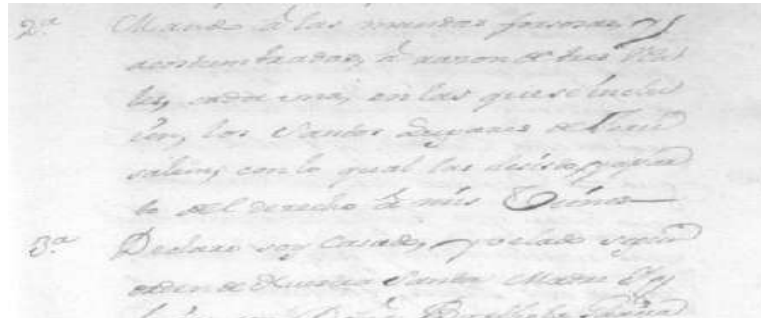 2.a Mando á las mandas forsosas, y
acostumbradas, á razon de tres Rea
les, cada una, en las que se inclu
ien, los Santos Lugares de Jeru
salem, con lo qual las desisto, y apar
to del derecho á mis
3.a Declaro soy Casado, y velado segun
orden de Nuestra Santa Madre Ygl
Doña